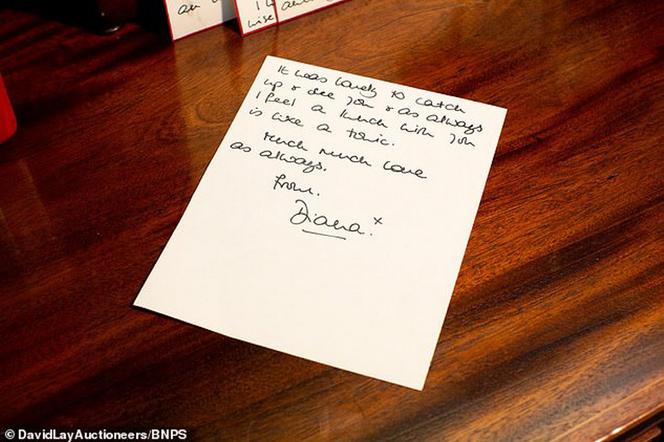 It was lovely to catch
up & see you & as always
I feel a lunch with you
is like a tonic.
Much Much love
as always.
from.
Diana. x
© DavidLayAuctioneers/BNPS